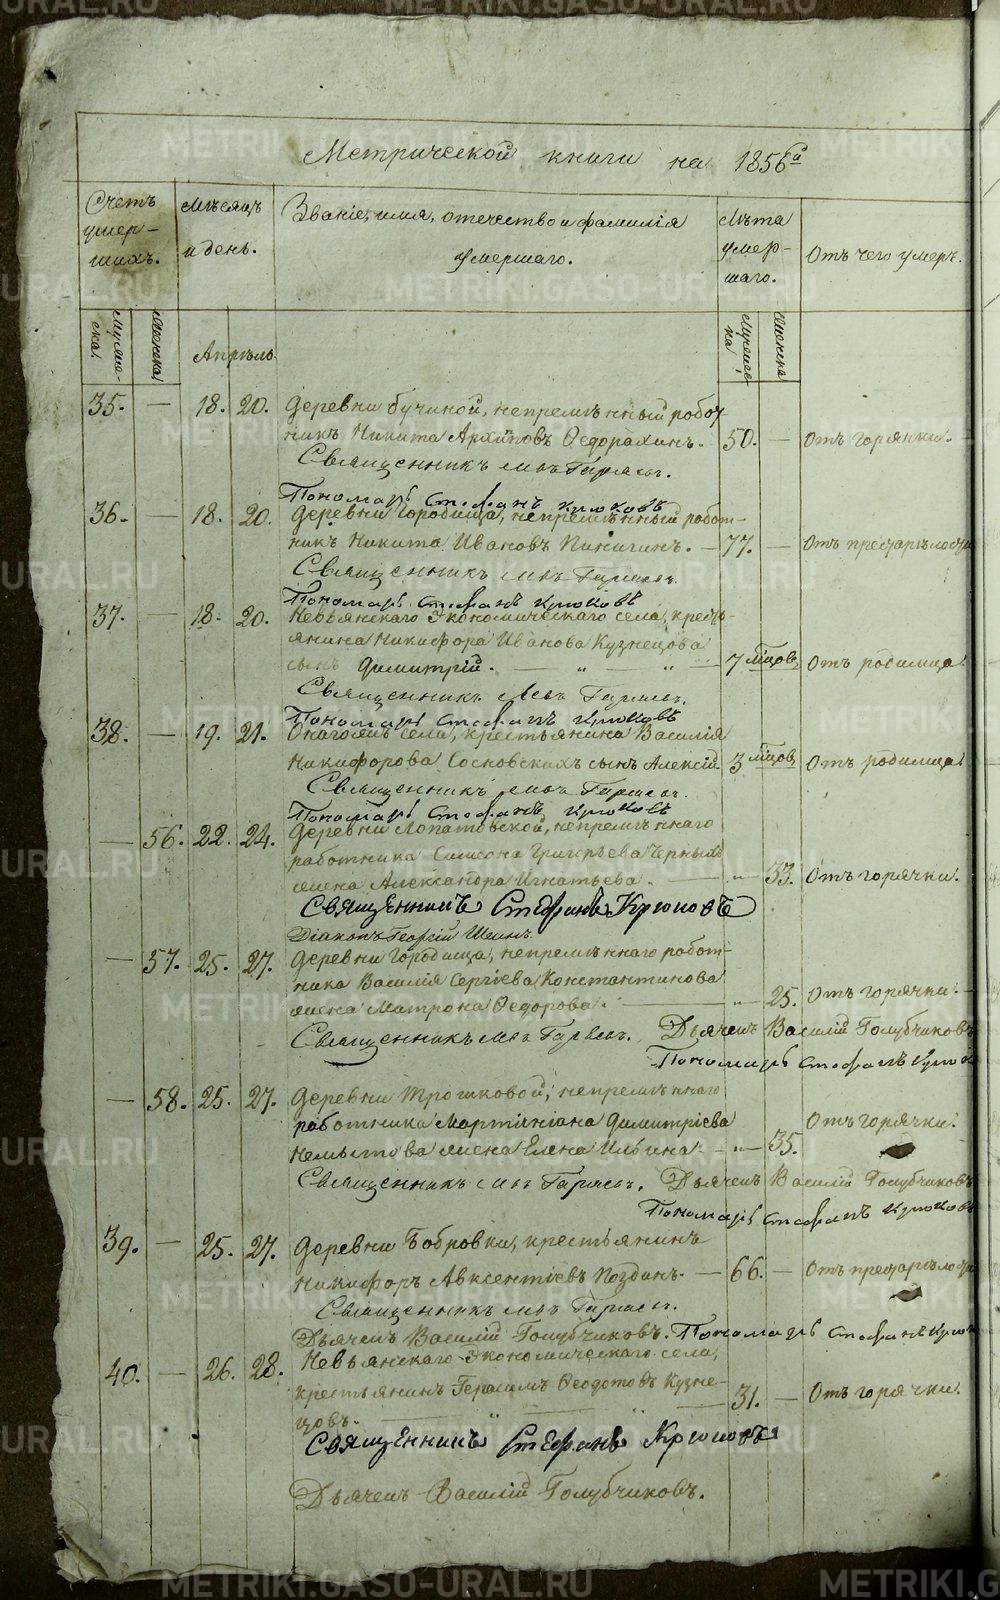 Метрической книги на 1856й
Счетъ умер-
шихъ.
Мѣсяцъ
и день.
Званіе, имя, отечество и фамилія
умершаго.
Лѣта
умер-
шаго.
Отъ чего умеръ.
Мужес-
ка.
Женска.
Апрѣль.
Мужес-
ка
Женска
35. — 18. 20. Деревни Бучиной, непремѣнный работ
никъ Никита Архиповъ Ѳедорахинъ. 50. — Отъ горячки.
Священникъ Левъ
Пономарь Стефанъ Крюковъ
36. — 18. 20. Деревни Городища, непремѣнный работ-
никъ Никита Ивановъ Пинигинъ. — 77. — Отъ престарѣлости
Священникъ Левъ
Пономарь Стефанъ Крюковъ
37. — 18. 20. Невьянскаго Экономическаго села, кресть-
янина Никифора Иванова Кузнецова
сынъ Димитрій. — " — " — 7 мѣцовъ Отъ родимца.
Священникъ Левъ
Пономарь Стефанъ Крюковъ
38. — 19. 21. Онагожъ села, крестьянина Василія
Никифорова Сосновскихъ сынъ Алексій 3 мѣцовъ Отъ родимца.
Священникъ Левъ
Пономарь Стефанъ Крюковъ
— 56. 22. 24. Деревни Лопатовской, непремѣннаго
работника Симеона Григорьева Черныхъ
жена Александра Игнатьева. — " — 33. Отъ горячки.
Священникъ Стефанъ Крюковъ
Діаконъ Георгій Шеинъ.
— 57. 25. 27. Деревни Городища, непремѣннаго работ-
ника Василія Сергѣева Константинова
жена Матрона Ѳедорова. — " — 25. Отъ горячки. —
Священникъ Левъ Дьячекъ Василій Голубчиковъ
Пономарь Стефанъ
— 58. 25. 27. Деревни Трошковой, непремѣннаго
работника Мартиніана Димитріева Отъ горячки.
Немытова жена Елена Ильина. — " — 35.
Священникъ Левъ Дьячекъ Василій Голубчиковъ
Пономарь Стефанъ Крюковъ
39. — 25. 27. Деревни Бобровки, крестьянинъ
Никифоръ Авксентіевъ Поздинъ. — 66. — Отъ престарѣлости
Священникъ Левъ
Дьячекъ Василій Голубчиковъ. Пономарь Стефанъ
40. — 26. 28. Невьянскаго Экономическаго села,
крестьянинъ Герасимъ Ѳеодотовъ Кузне-
цовъ. — " — 31. — Отъ горячки.
Священникъ Стефанъ Крюковъ
Дьячекъ Василій Голубчиковъ.
METRIKI.GASO-URAL.RU